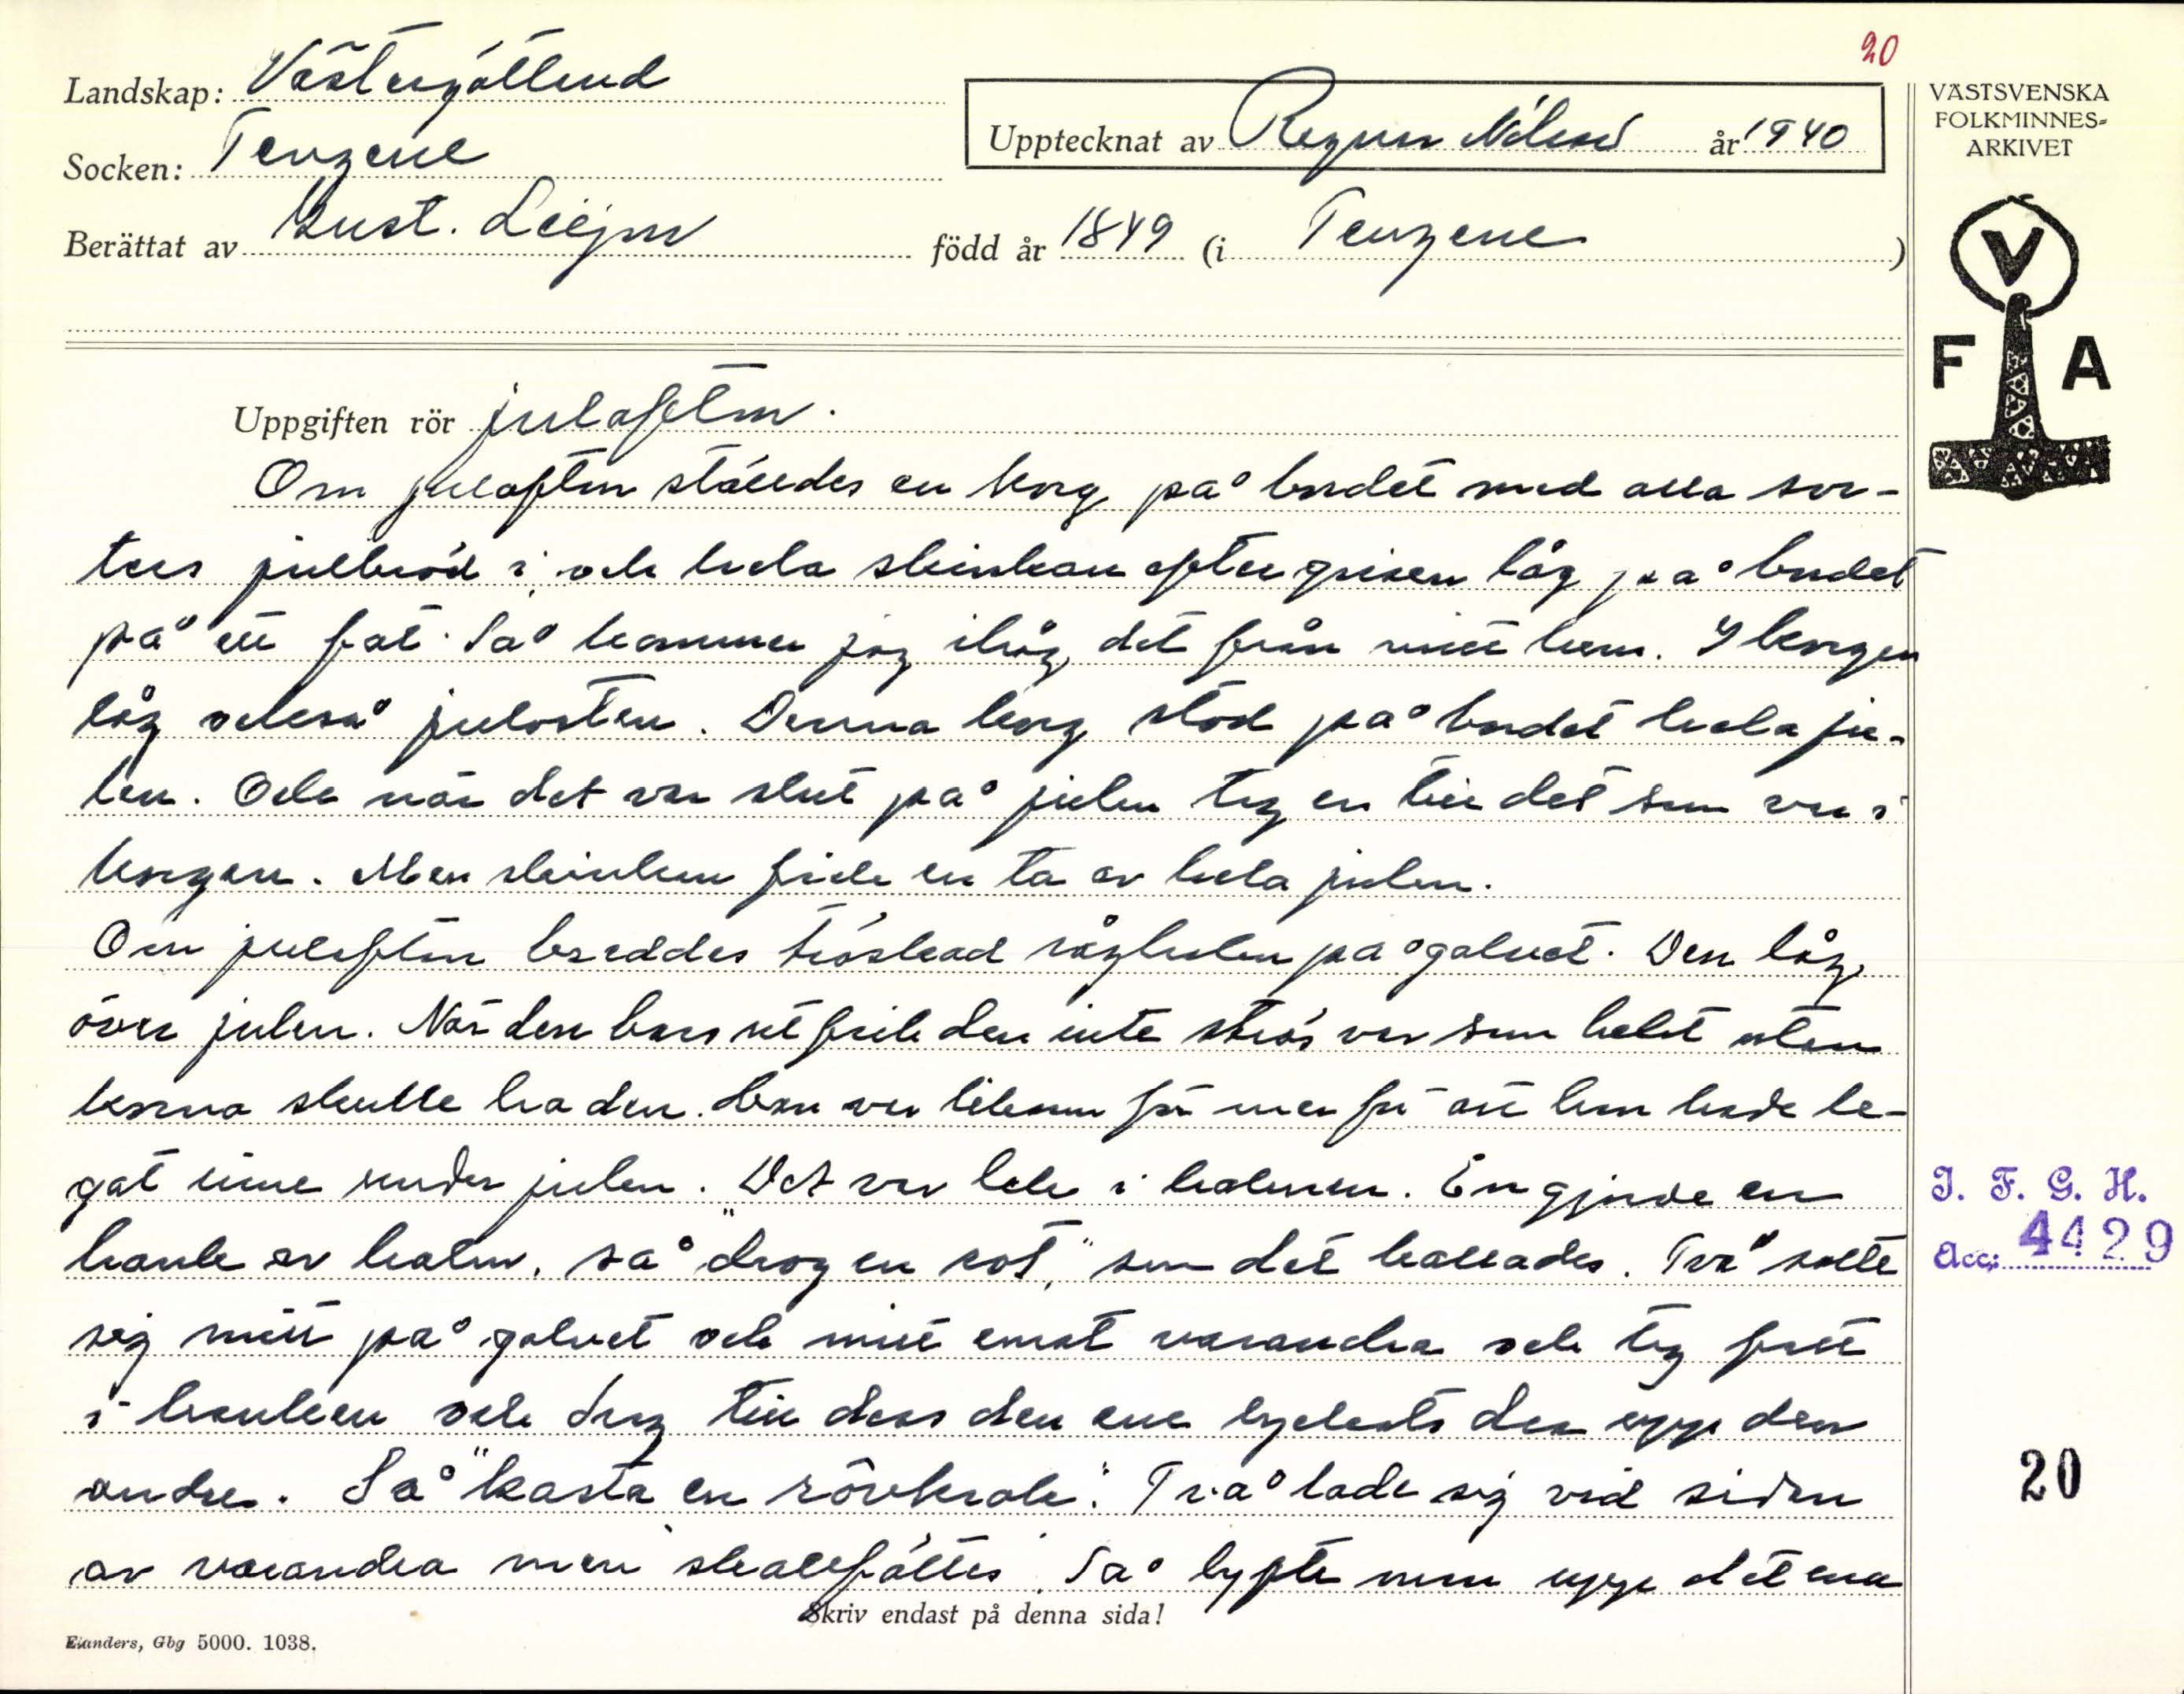 20
Landskap: Västergötland
Socken: Tengene
Upptecknat av Ragnar Nilsson år 1940
Berättat av Gust. Liljen född år 1849 (i Tengene)
VÄSTSVENSKA
FOLKMINNES-
ARKIVET
V
F A
Uppgiften rör julafton.
Om julafton ställdes en korg på bordet med alla sor-
ters julbröd i, och hela skinkan efter grisen låg på bordet
på ett fat. Så kommer jag ihåg det från mitt hem. I korgen
låg också julosten. Denna korg stod på bordet hela ju-
len. Och när det var slut på julen tog en till det som var i
korgen. Men skinkan fick en ta av hela julen.
Om julafton breddes tröskad råghalm på golvet. Den låg
över julen. När den bars ut fick den inte strös var som helst utan
korna skulle ha den. Den var liksom för mer för att den hade le-
gat inne under julen. Det var lek i halmen. En gjorde en
hank av halm, så "drog en rot," som det kallades. Två satte
sig mitt på golvet och mitt emot varandra och tog fatt
i hanken och drog till dess den ene lyckats dra upp den
andre. Så "kasta en rövkrok". Två lade sig vid sidan
av varandra men skallfättes. Så lyfte man upp det ena
Skriv endast på denna sida!
Elanders, Gbg 5000. 1038.
I. F. G. H.
Acc: 4429
20